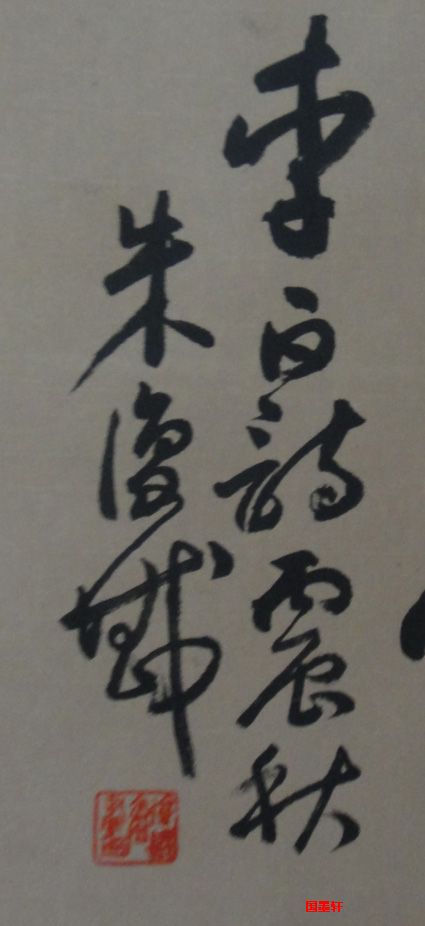 李白詩震秋
朱復戡
国墨轩